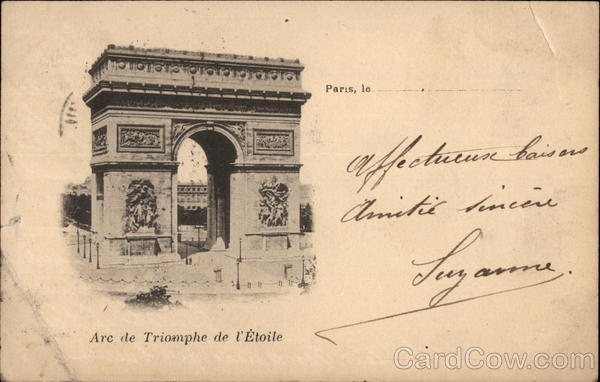 Paris, le
Affectueux baisers
Amitié sincère
Suzanne.
Arc de Triomphe de l'Étoile
CardCow.com